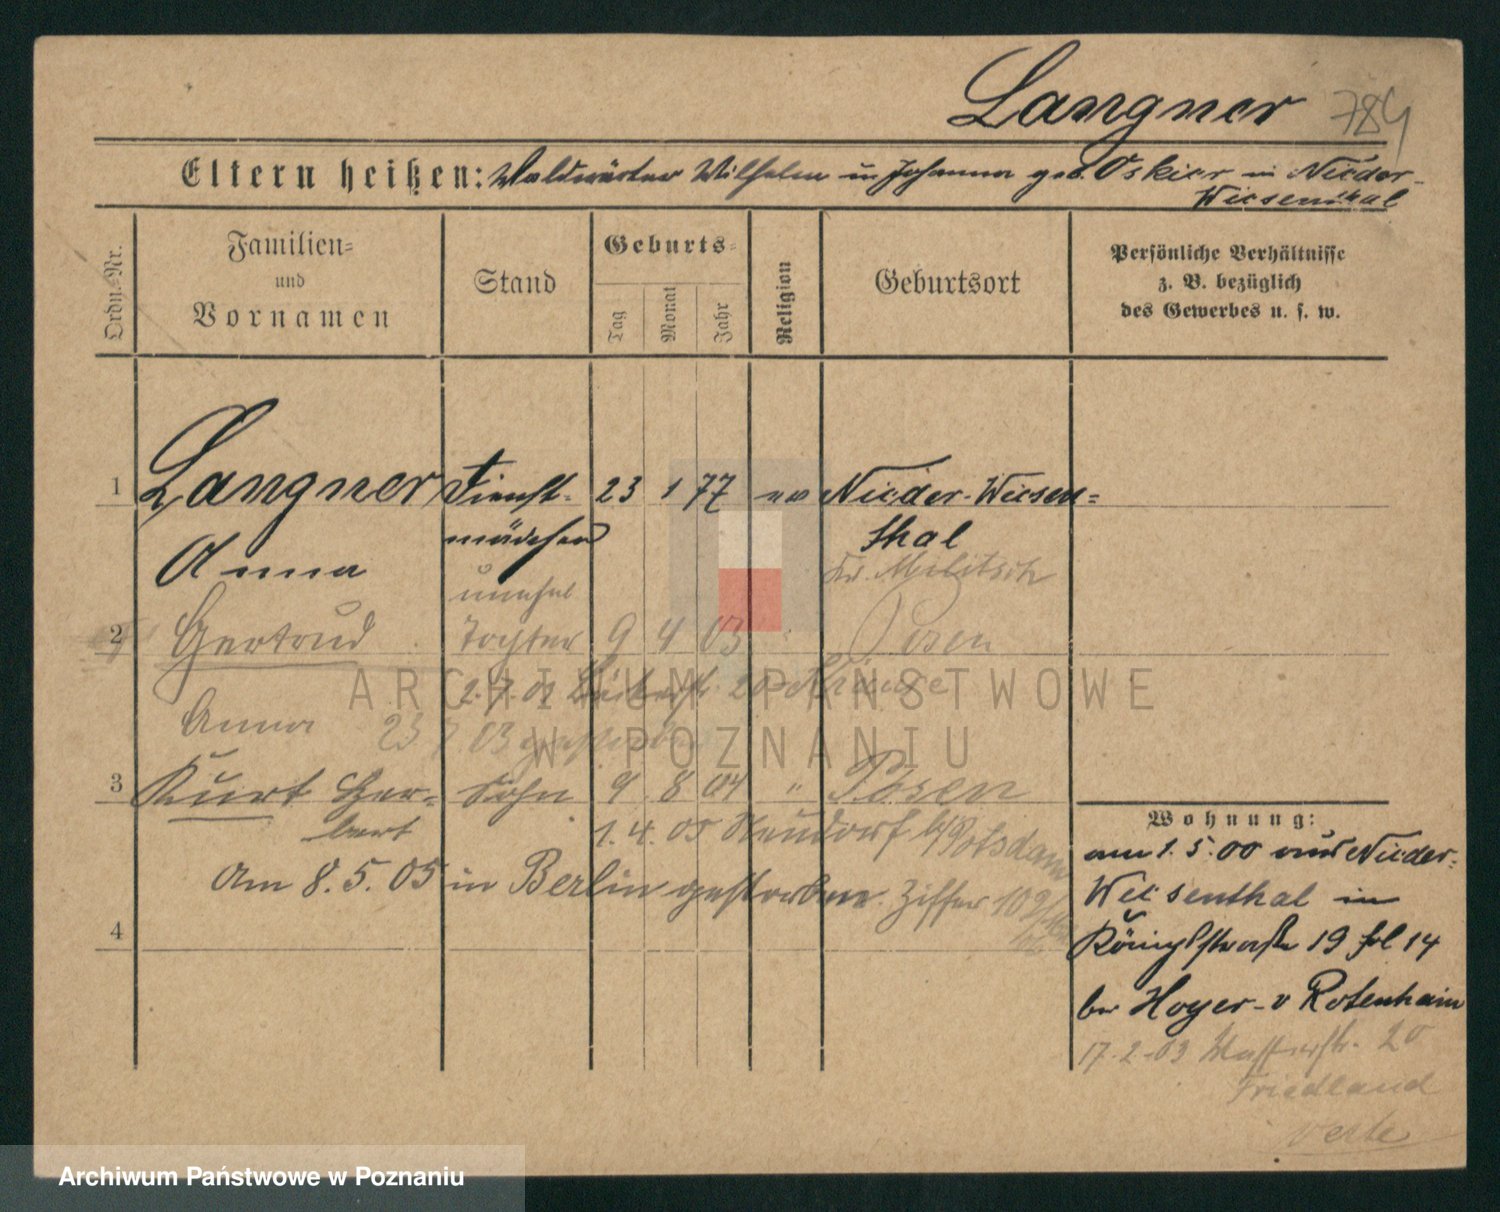 Langner 784
Eltern heißen: Waldwärter Wilhelm u Johanna geb. Oskier in Nieder-
Wiesenthal
Ordn.-Nr.
Familien-
und
Vornamen
Stand
Geburts-
Tag
Monat
Jahr
Religion
Geburtsort
Persönliche Verhältnisse
z. B. bezüglich
des Gewerbes u. s. w.
1 Langner Dienst- 23 1 77 ev Nieder-Wiesen-
Anna mädchen thal
unehel Kr. Militsch
2 Gertrud Tochter 9 4 03 " Posen
2. 7. 01 20
Anna 23 7 03 gestorben
3 Kurt Her- Sohn 9 8 04 " Posen
bert 1. 4. 05 Neudorf b/Potsdam
Am 8. 5. 05 in Berlin gestorben. Ziffer 109
4
Wohnung:
am 1. 5. 00 aus Nieder-
Weisenthal in
Königsstraße 19 fol 14
bei Hoyer- v Rotenhain
17. 2. 03 20
Friedland
ARCHIWUM PAŃSTWOWE
W POZNANIU
Archiwum Państwowe w Poznaniu